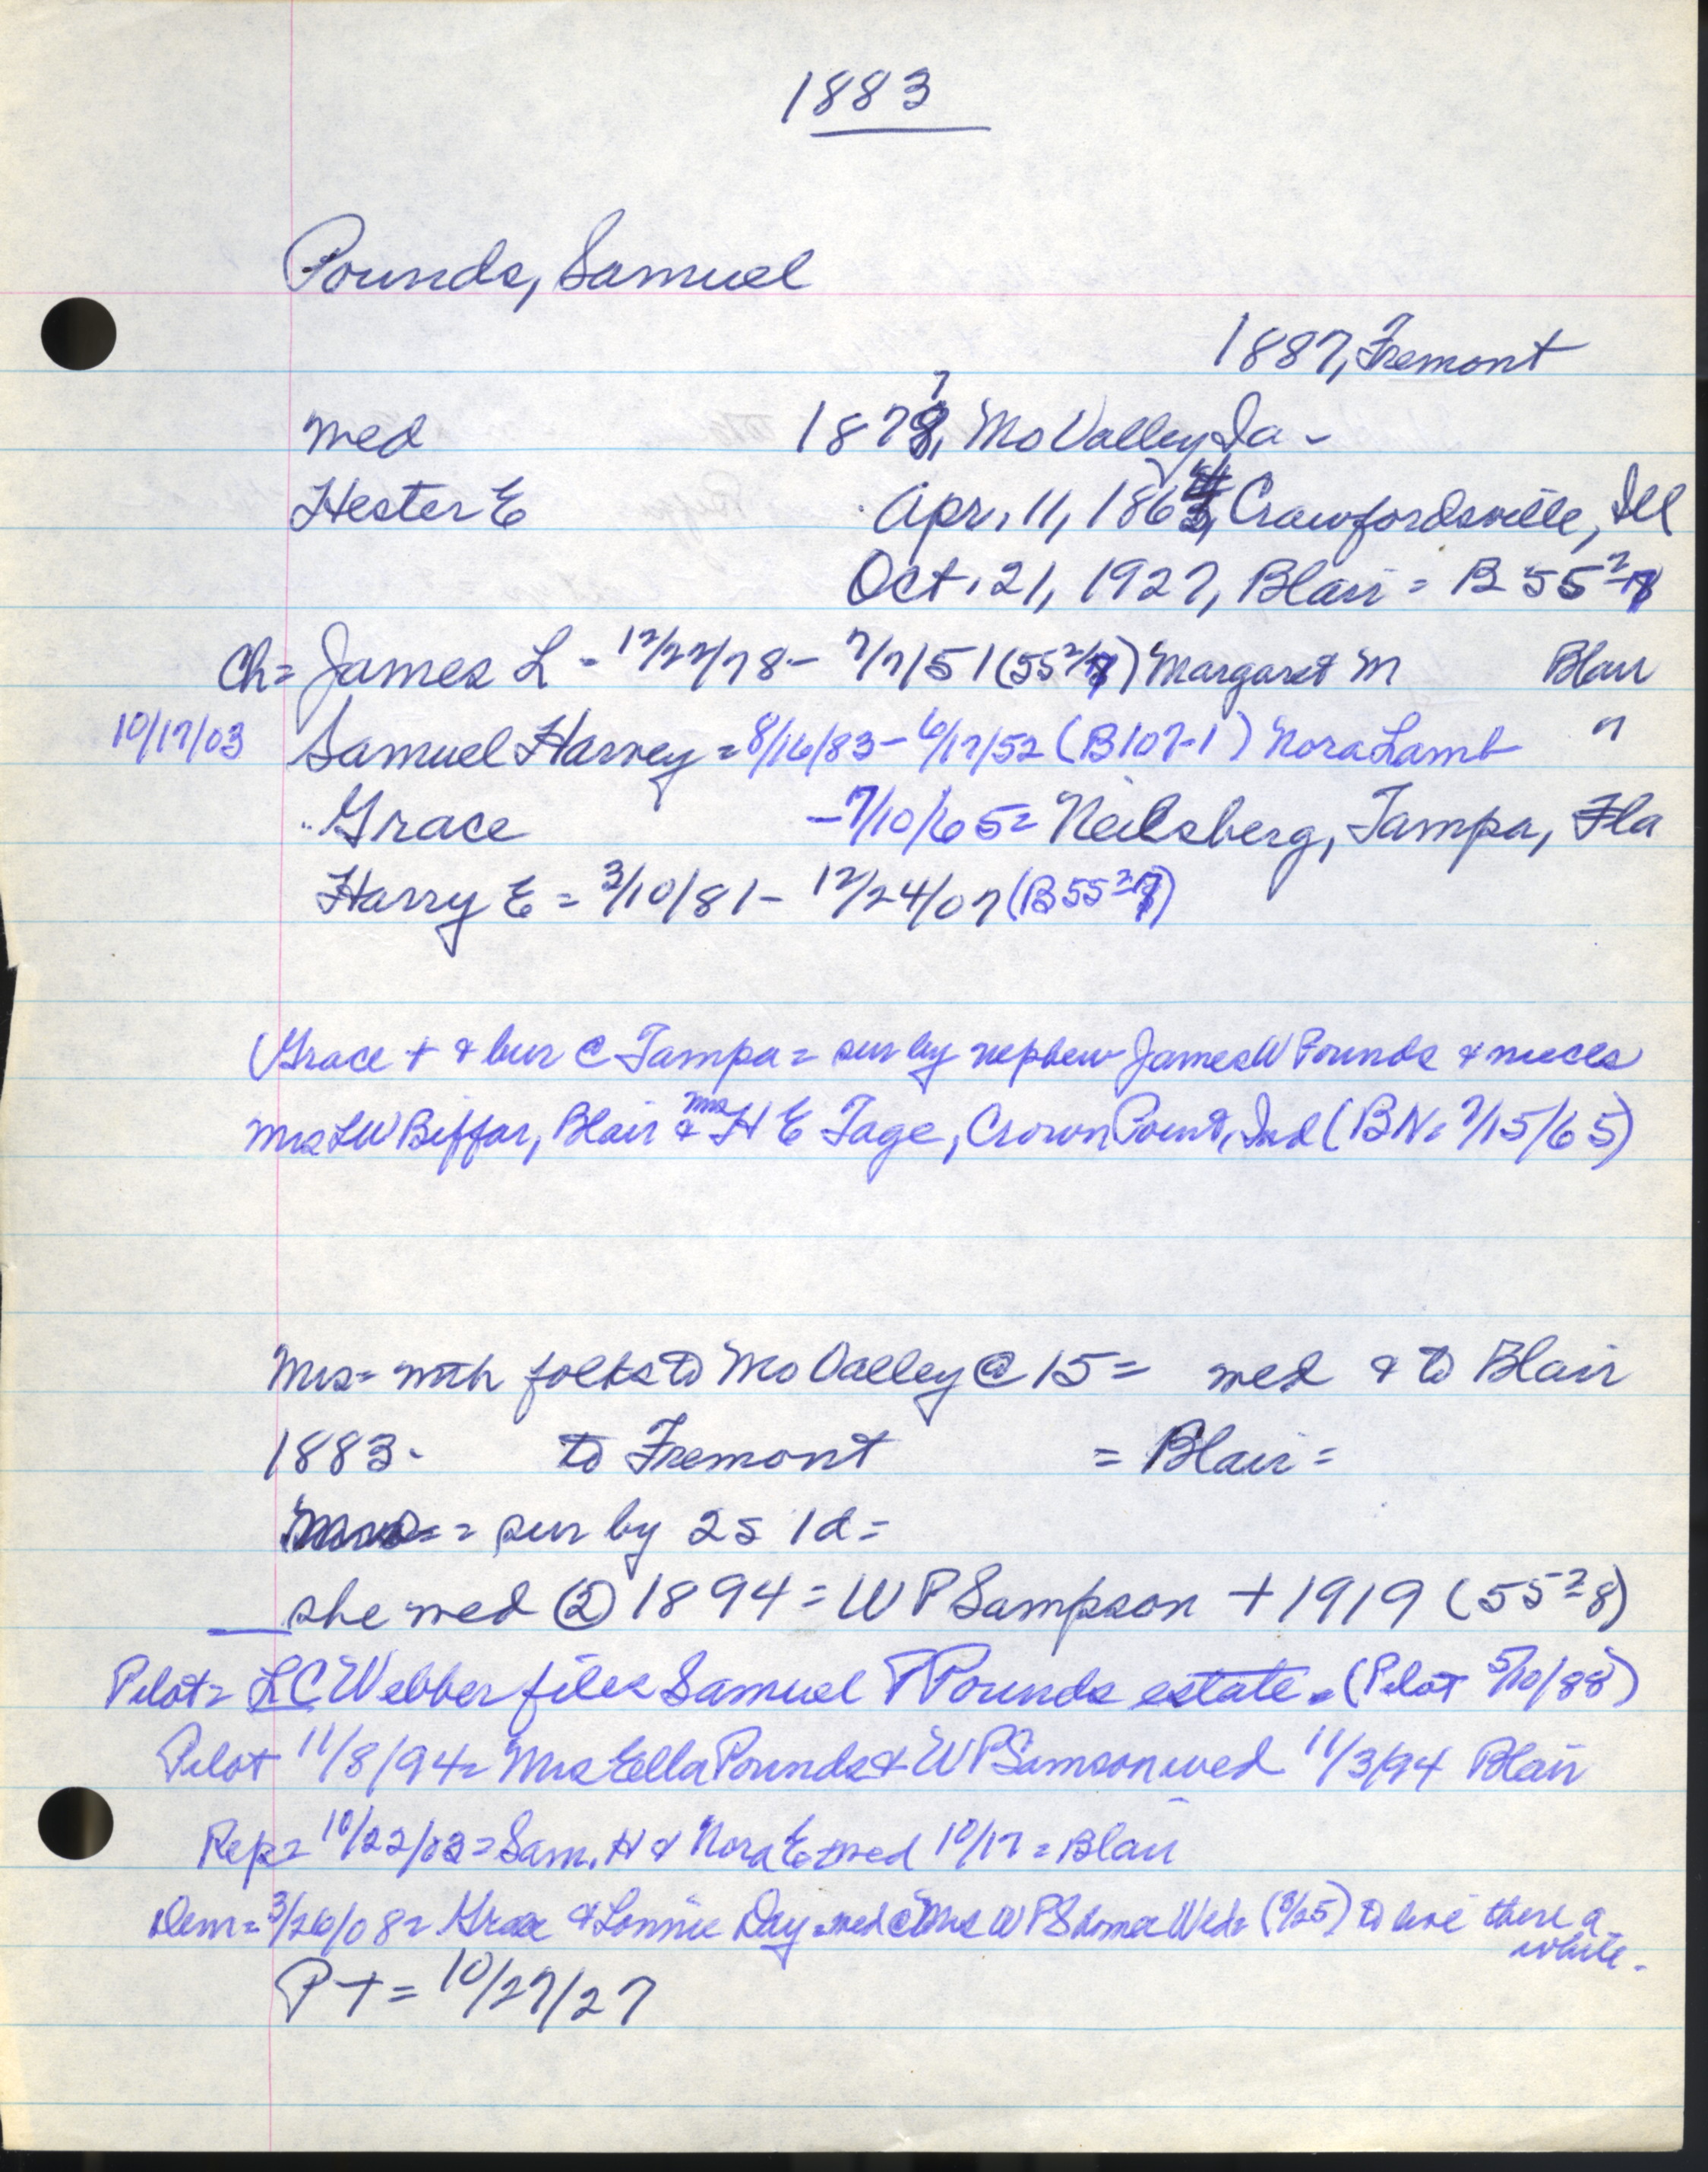 1883
Pounds, Samuel
1887, Fremont
med 1877, Mo Valley Ia -
Hester E Apr. 11, 186 , Crawfordsville, Ill
Oct. 21, 1927, Blair = B 55²-8
Ch= James L - 12/22/78 - 7/7/51 (55²/8) Margaret M Blair
10/17/03 Samuel Harvey = 8/16/83 - 6/17/52 (B107-1) Nora Lamb "
Grace - 7/10/65 = Neilsberg, Tampa, Fla
Harry E = 3/10/81 - 12/24/07 (B55²-8)
(Grace + & bur @ Tampa = sur by nephew James W Pounds & nieces
Mrs LW Biffar, Blair & Mrs H E Tage, Crown Point, Ind (BN= 7/15/65)
Mrs= with folks to Mo Valley @ 15 = med & to Blair
1883- to Fremont = Blair =
= sur by 2s 1d =
she med (2) 1894 = W P Sampson + 1919 (55²-8)
Pilot= LC Webber files Samuel T Pounds estate. (Pilot 5/10/88)
Pilot 11/8/94= Mrs Ella Pounds & W P Samson wed 11/3/94 Blair
Rep= 10/22/03 = Sam. H & Nora E med 10/17 = Blair
Dem= 3/26/08= Grace & Lonnie Day = med @ Mrs W P Wed= (3/25) to live there a
while.
PT= 10/27/27